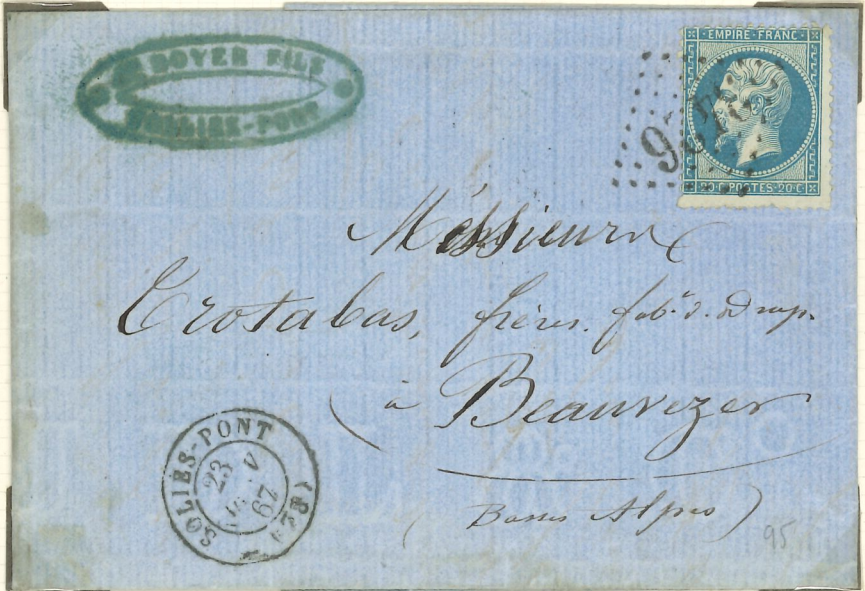 BOYER FILS
SOLLIES-PONT
EMPIRE FRANC
20 C POSTES 20 C
Messieurs
Trotabas, frères. fab.ts d. Drap.
à Beauvezer
(Basses Alpes)
SOLIÈS-PONT (78)
23
67
95